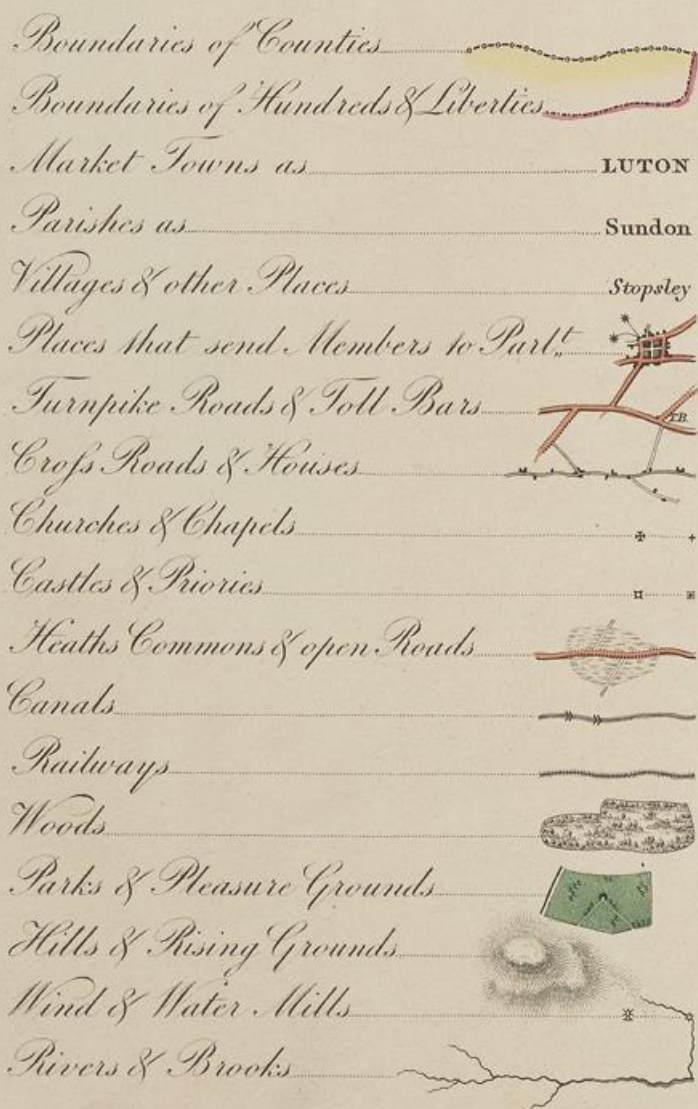 Boundaries of Counties
Boundaries of Hundreds & Liberties
Market Towns as LUTON
Parishes as Sundon
Villages & other Places Stopsley
Places that send Members to Parlt.
Turnpike Roads & Toll Bars T.B.
Croſs Roads & Houses
Churches & Chapels
Castles & Priories
Heaths Commons & open Roads
Canals
Railways
Woods
Parks & Pleasure Grounds
Hills & Rising Grounds
Wind & Water Mills
Rivers & Brooks